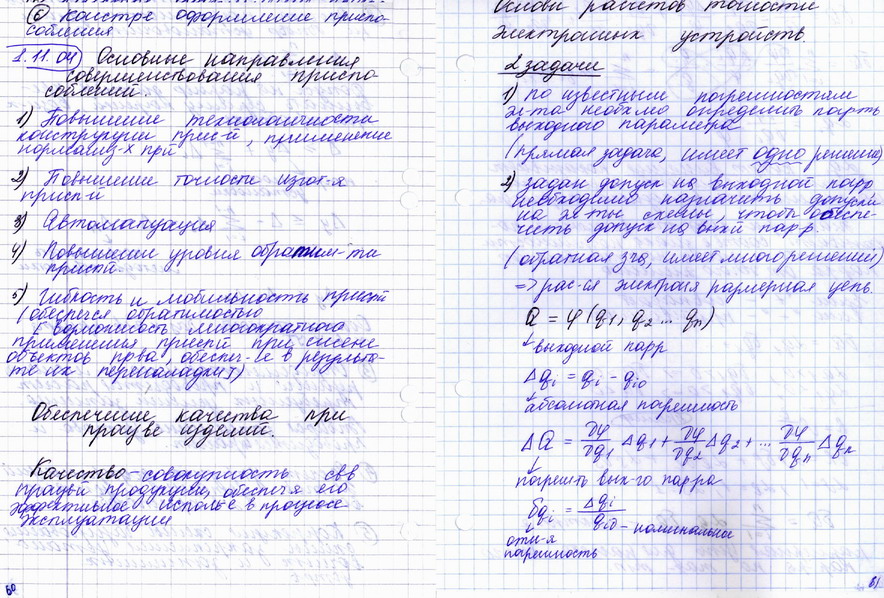 ⑥ конструк оформление приспо-
собления
1.11.04 Основные направления
совершенствования приспо
соблений.
1) Повышение технологичности
конструкции присп-й, применение
нормализ-х при
2) Повышение точности изгот-я
присп-й
3) Автоматизация
4) Повышении уровня обратим-ти
присп.
5) Гибкость и мобильность присп
(обеспеся обратимостью
(возможность многократного
применения присп при смене
объектов пр-ва, обеспеч-е в результа-
те их переналадки)
Обеспечение качества при
пр-ве изделий.
Качество - совокупность св-в
продукции, обеспеч-я его
эффективное использ-е в процессе
эксплуатации
60
Основы расчетов точности
электронных устройств.
2 задачи
1) по известным погрешностям
эл-та необх-мо определить погр-ть
выходного параметра
(прямая задача, имеет одно решение)
2) задан допуск на выходной парр
необходимо назначить допуски
на эл-ты схемы, чтобы обеспе-
чить допуск на вых-й пар-р.
(обратная з-ча, имеет много решений)
=> рас-ся электр-ая размерная цепь.
Q = φ (q₁, q₂ ... qₙ)
↓ выходной парр
Δqᵢ = qᵢ - qᵢ₀
↓ абсолютная погрешность
ΔQ = ∂φ/∂q₁ Δq₁ + ∂φ/∂q₂ Δq₂ + ... ∂φ/∂qₙ Δqₙ
↓
погрешть вых-го пар-ра
δqᵢ = Δqᵢ/qᵢ₀ - номинальн
↓
отн-я
погрешность
61